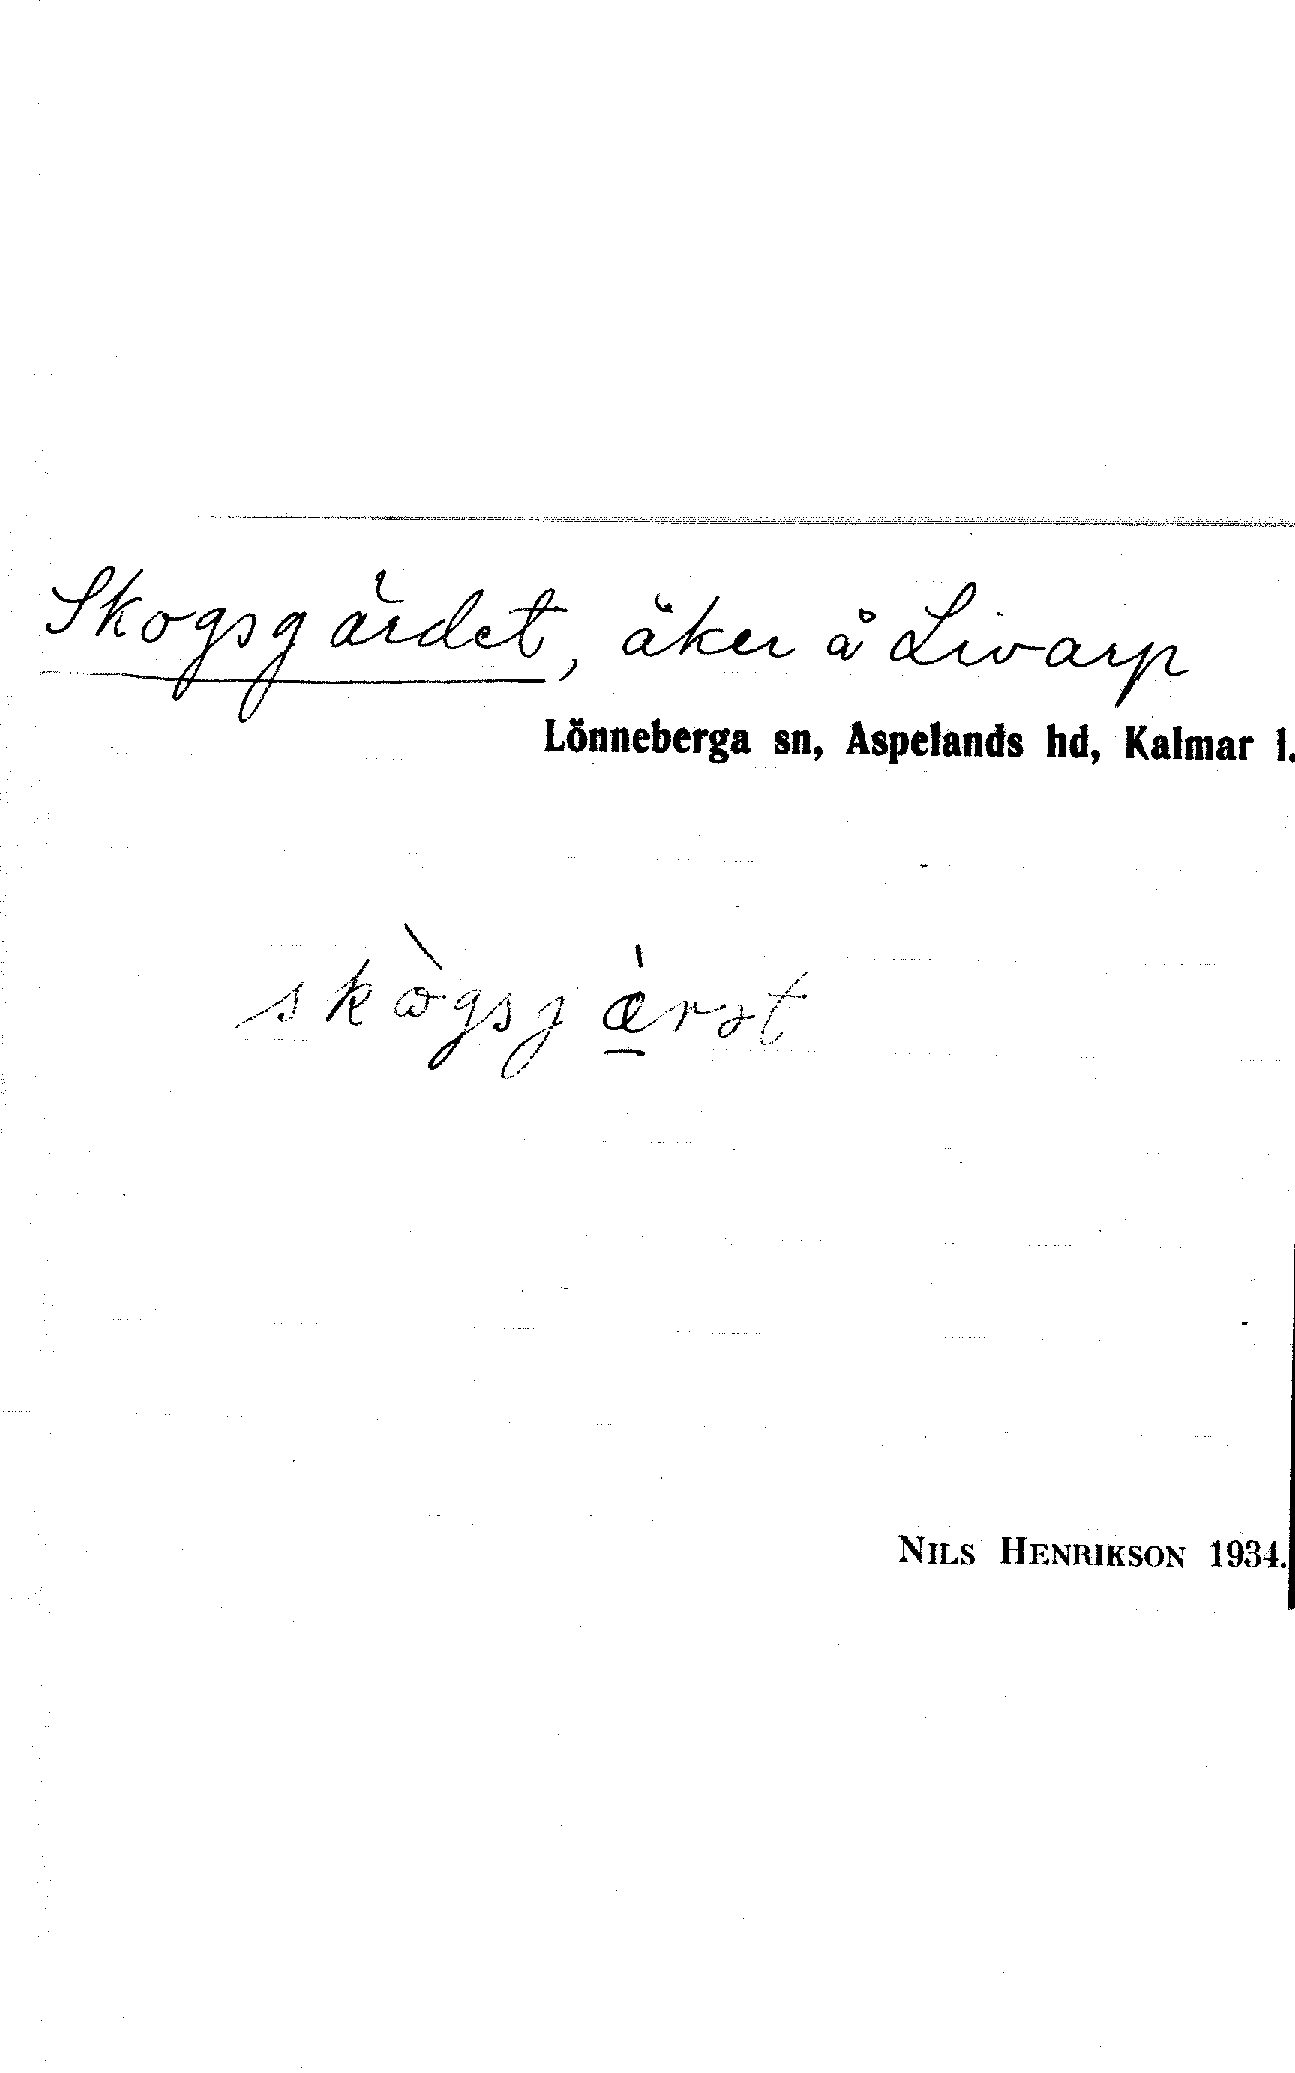 Skogsgärdet, åker å Livarp
Lönneberga sn, Aspelands hd, Kalmar l.
skɷ̀gsjæ̠̀rət
NILS HENRIKSON 1934.